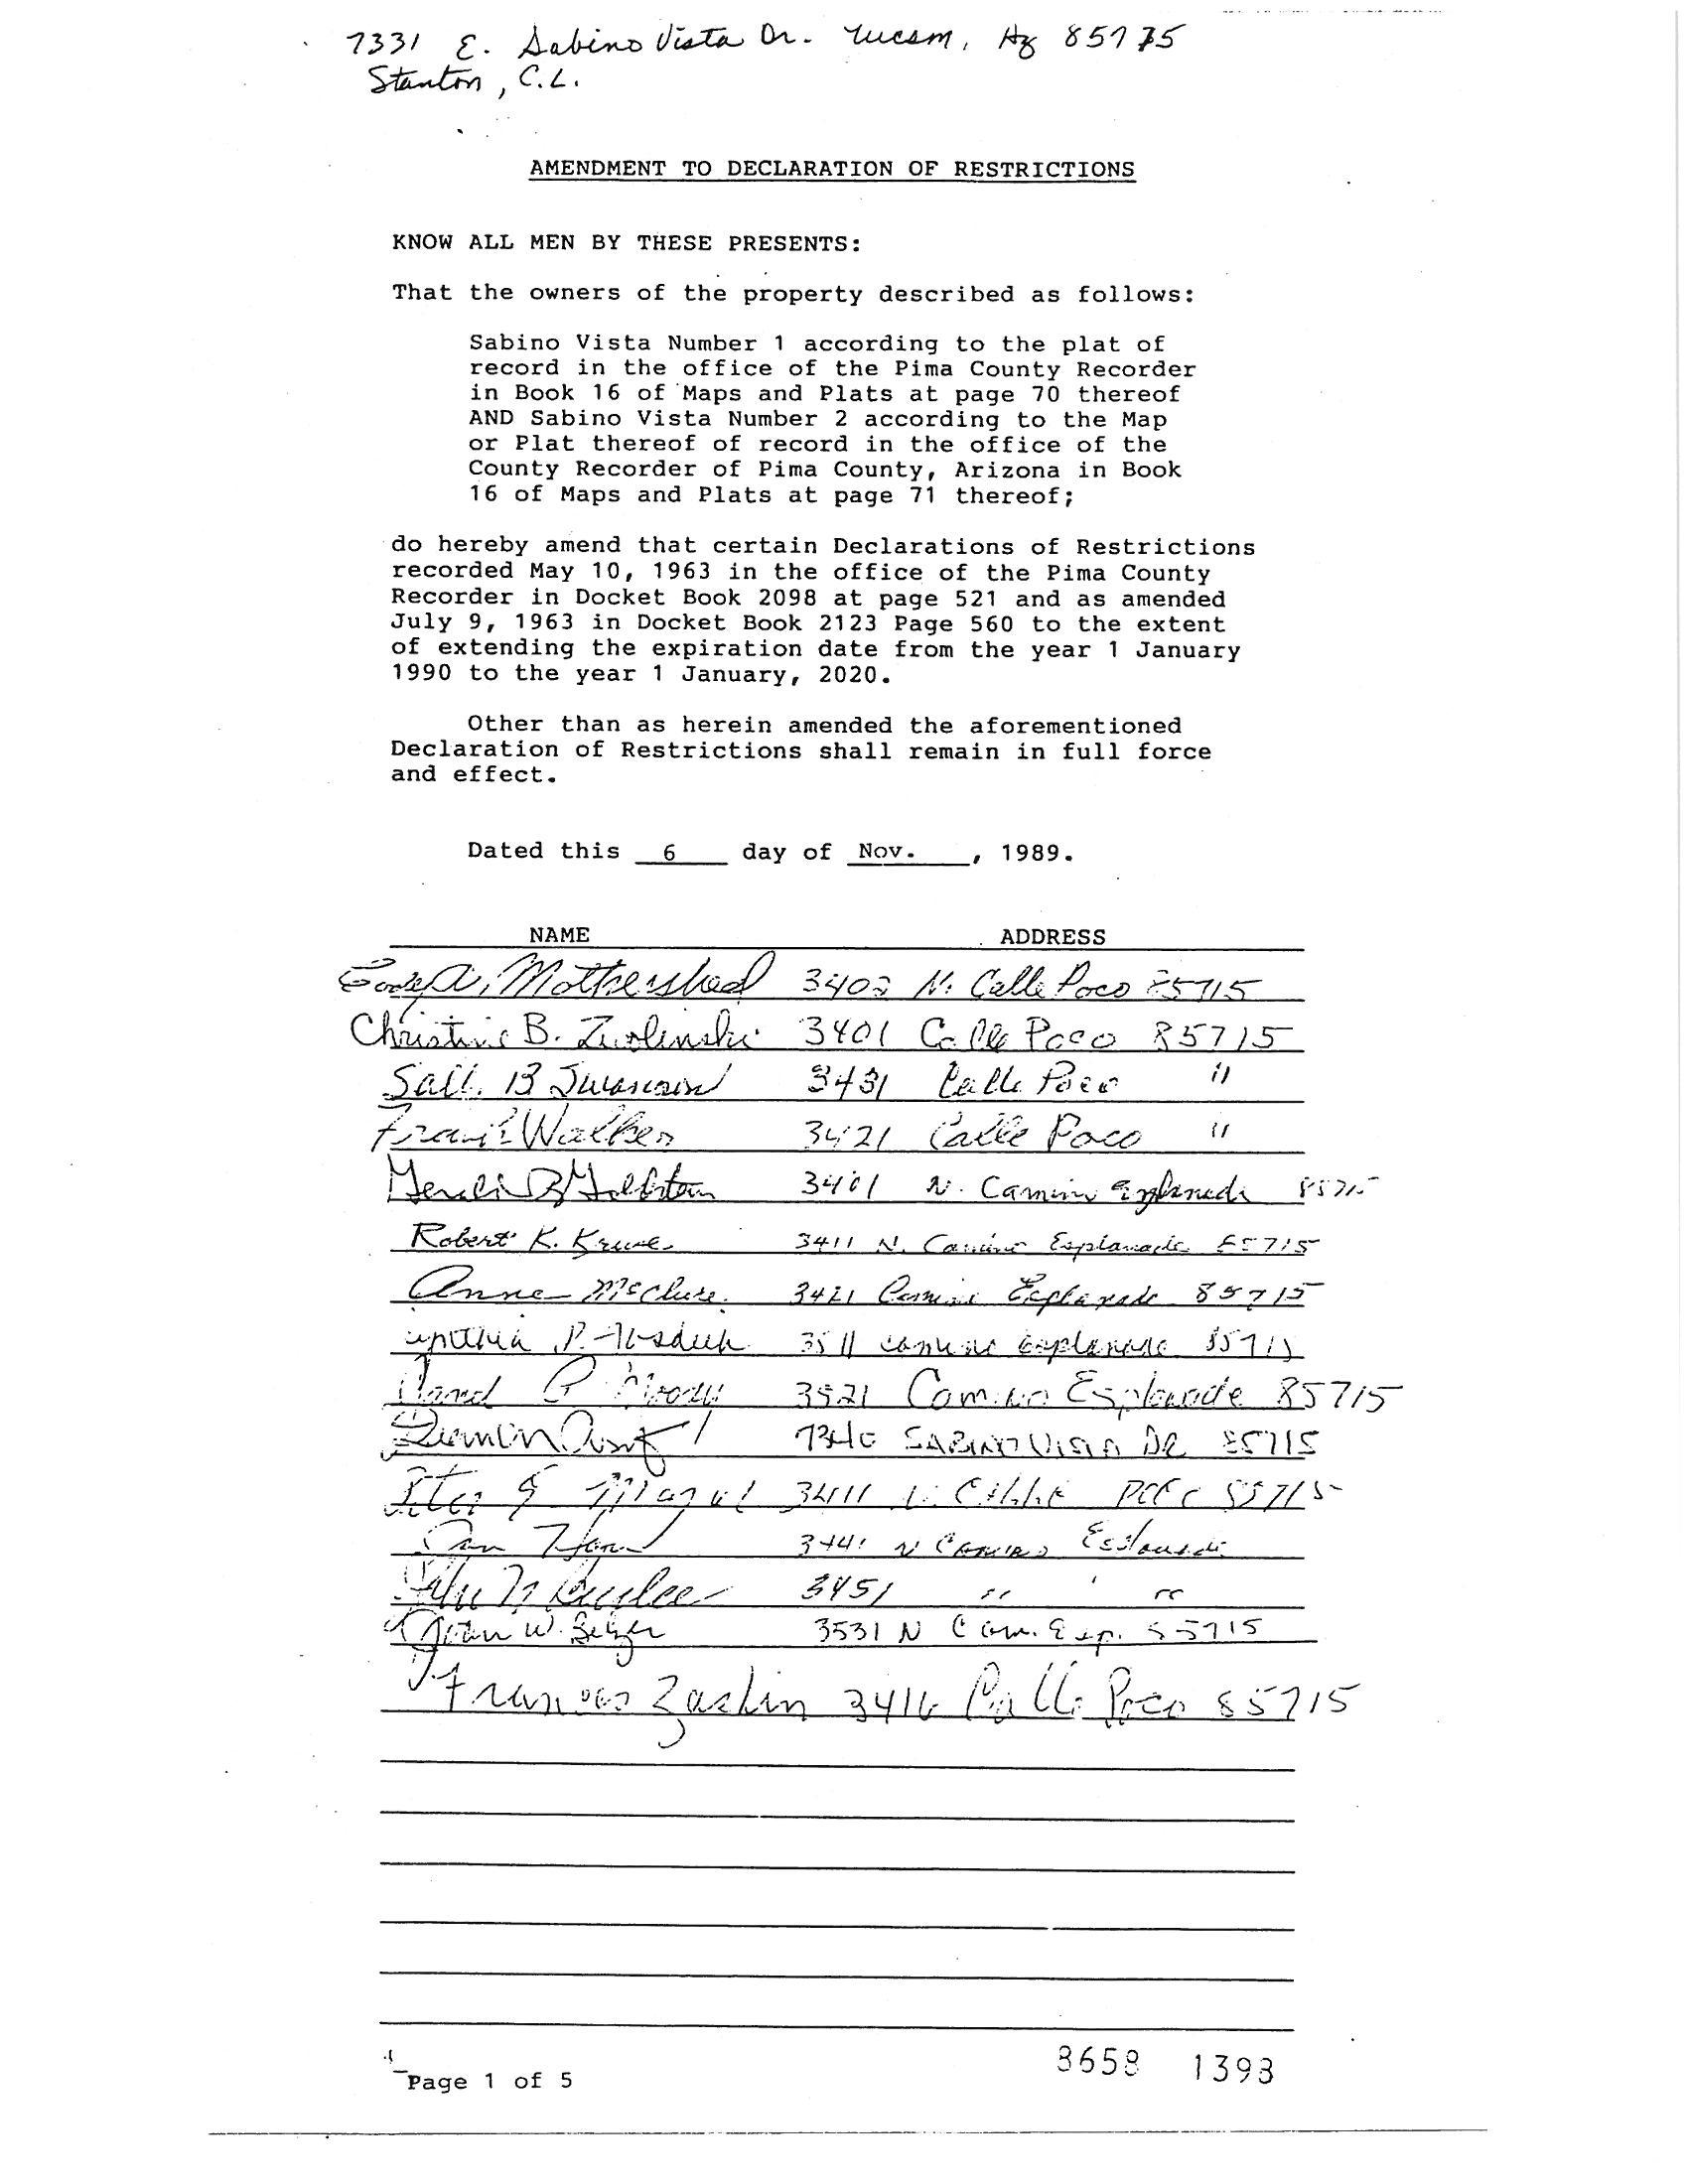 7331 E. Sabino Vista Dr. Tucson, Az 85715
Stanton, C.L.
AMENDMENT TO DECLARATION OF RESTRICTIONS
KNOW ALL MEN BY THESE PRESENTS:
That the owners of the property described as follows:
Sabino Vista Number 1 according to the plat of
record in the office of the Pima County Recorder
in Book 16 of Maps and Plats at page 70 thereof
AND Sabino Vista Number 2 according to the Map
or Plat thereof of record in the office of the
County Recorder of Pima County, Arizona in Book
16 of Maps and Plats at page 71 thereof;
do hereby amend that certain Declarations of Restrictions
recorded May 10, 1963 in the office of the Pima County
Recorder in Docket Book 2098 at page 521 and as amended
July 9, 1963 in Docket Book 2123 Page 560 to the extent
of extending the expiration date from the year 1 January
1990 to the year 1 January, 2020.
Other than as herein amended the aforementioned
Declaration of Restrictions shall remain in full force
and effect.
Dated this 6 day of Nov. , 1989.
NAME ADDRESS
A. Mothershed 3402 N. Calle Poco 85715
Christine B. Zwolinski 3401 Calle Poco 85715
B Swanson 3431 Calle Poco "
Frank Walker 3421 Calle Poco "
3401 N. Camino Esplanade 85715
Robert K. Kruse 3411 N. Camino Esplanade 85715
Anne McClure 3421 Camino Esplanade 85715
Cynthia P. 3511 camino esplanade 85715
3521 Camino Esplanade 85715
7340 SABINO VISTA DR 85715
Peter 3411 N. CALLE POCO 85715
3441 N Camino Esplanade
3451 " " "
W. 3531 N Cam. Esp. 85715
Frances Zaslin 3416 Calle Poco 85715
Page 1 of 5
8658 1393